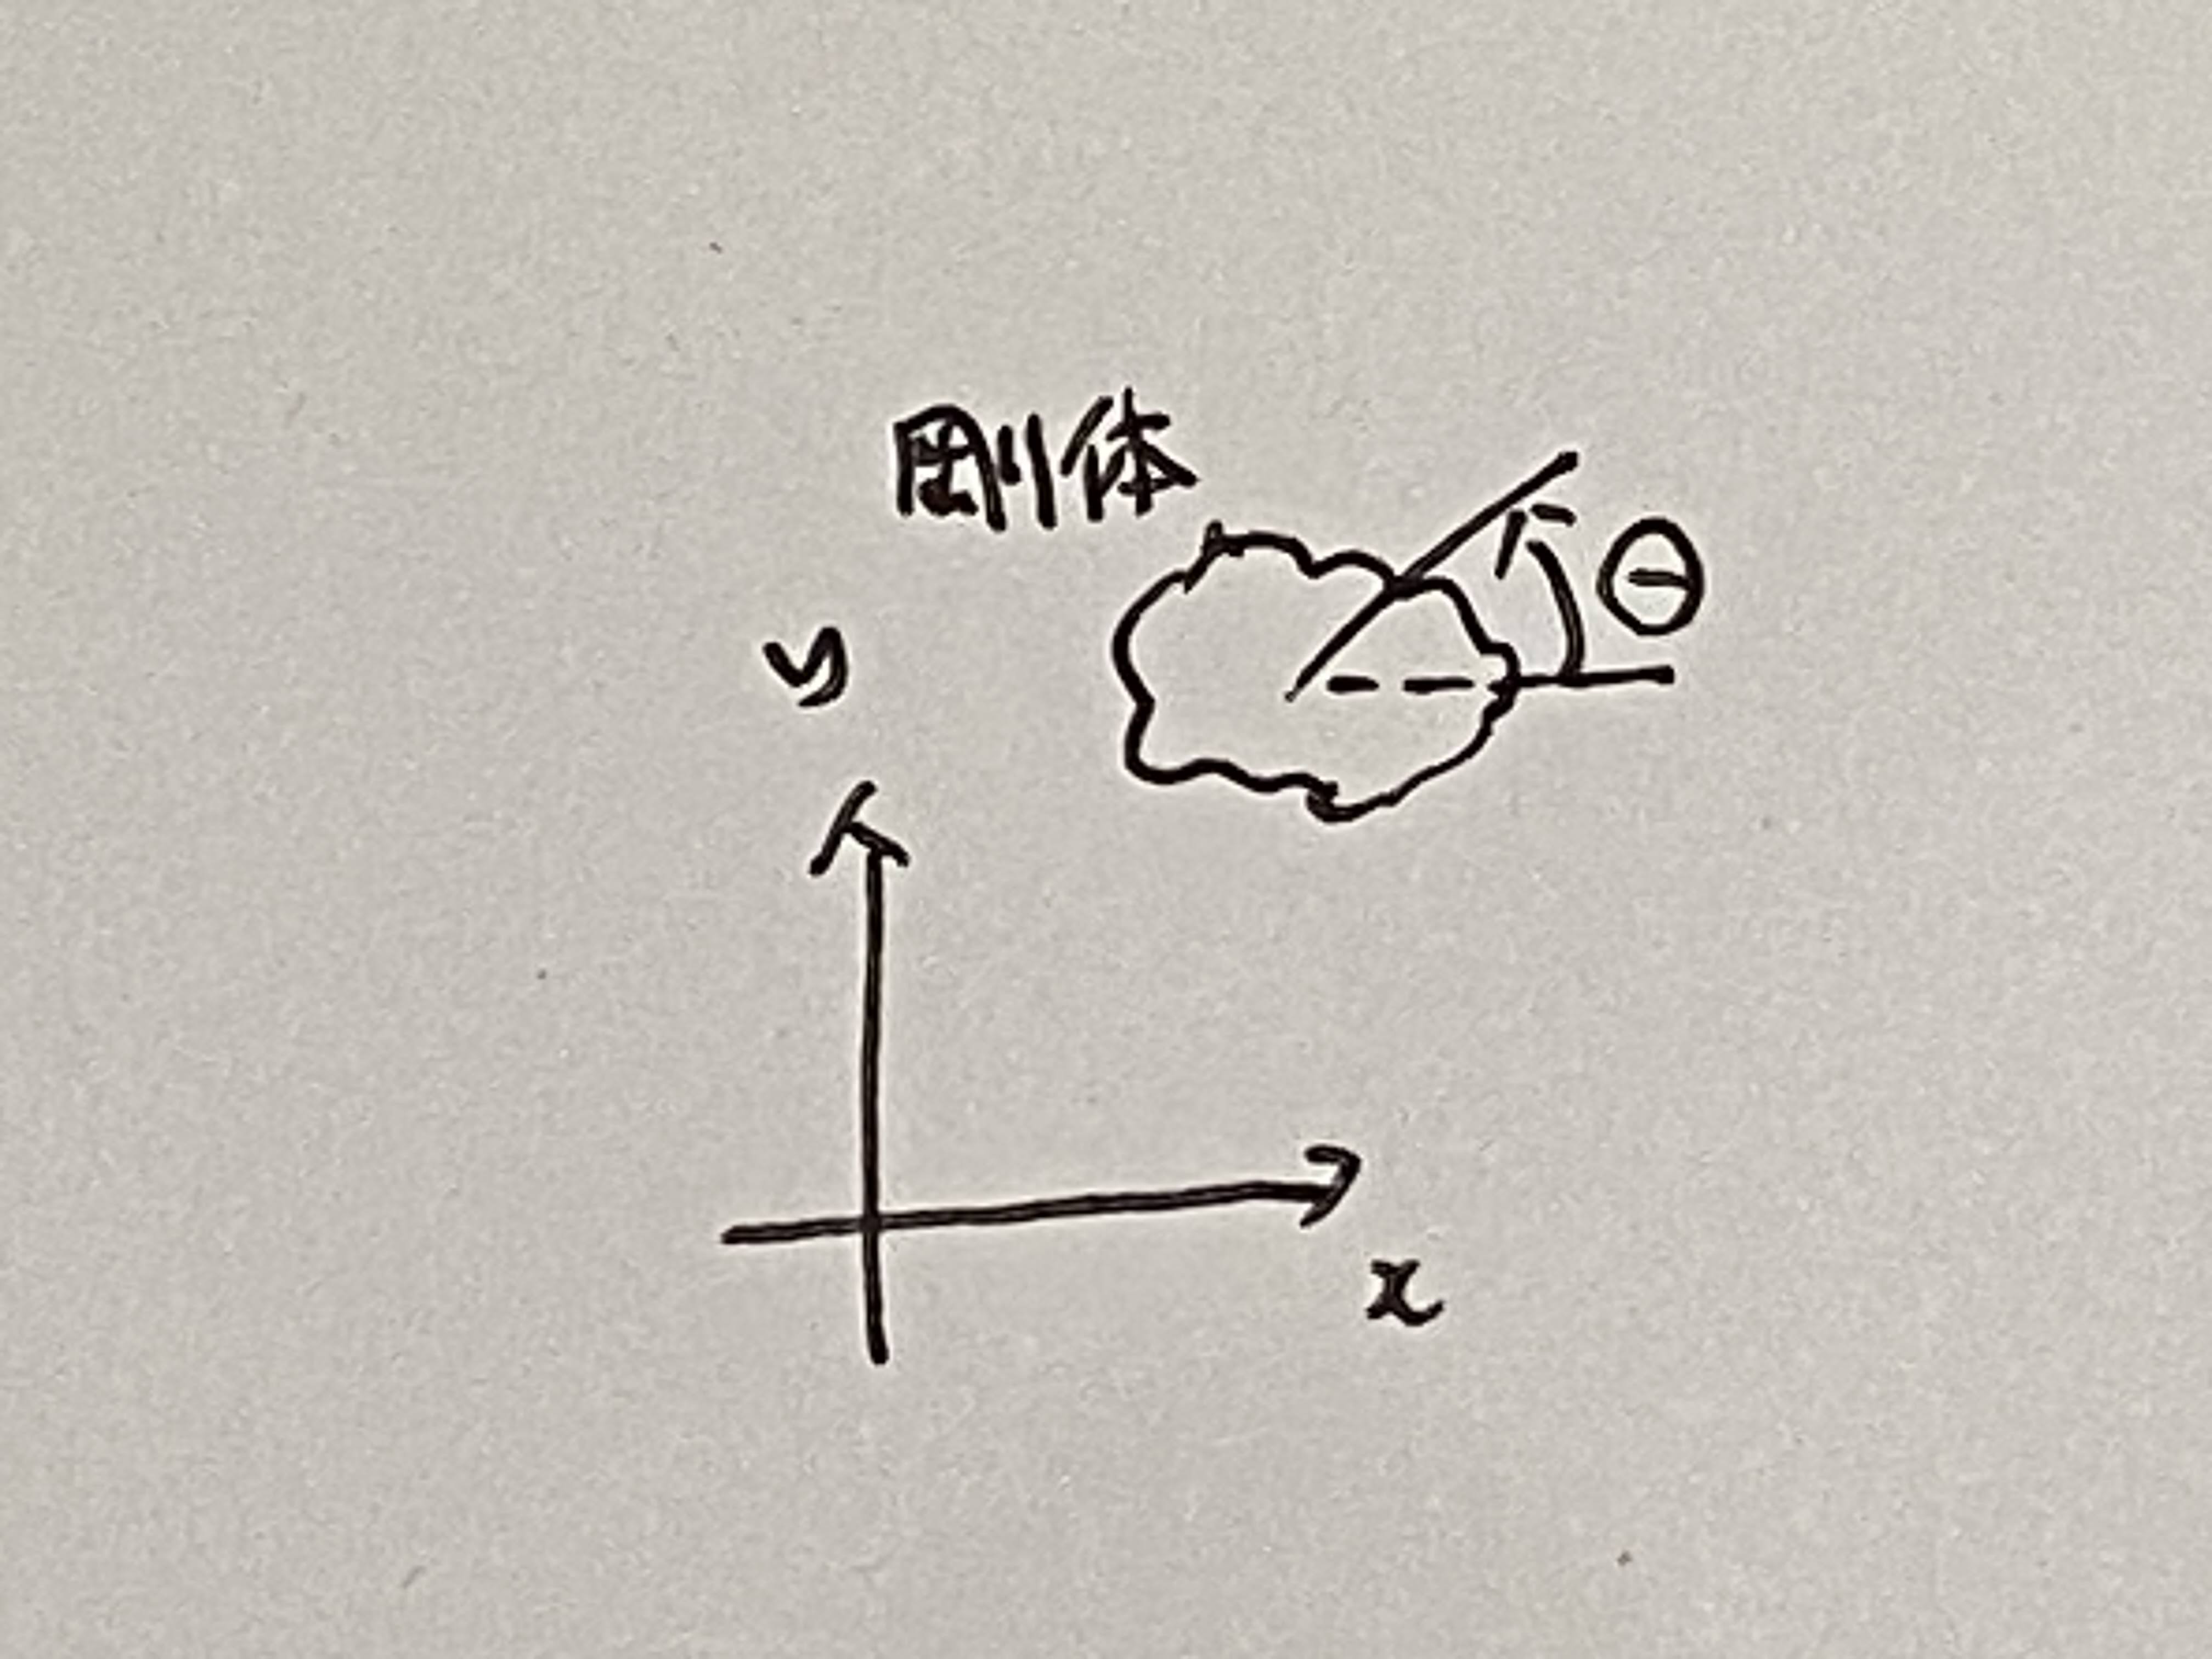 剛体
θ
y
x